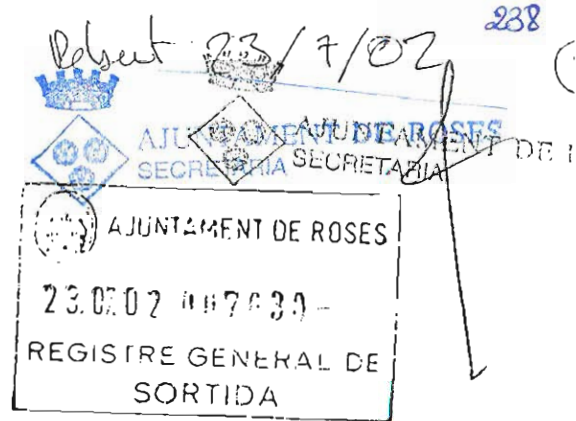 238
Rebut 23/7/02
AJUNTAMENT DE ROSES
SECRETARIA
AJUNTAMENT DE
SECRETARIA
AJUNTAMENT DE ROSES
23.07.02
REGISTRE GENERAL DE
SORTIDA